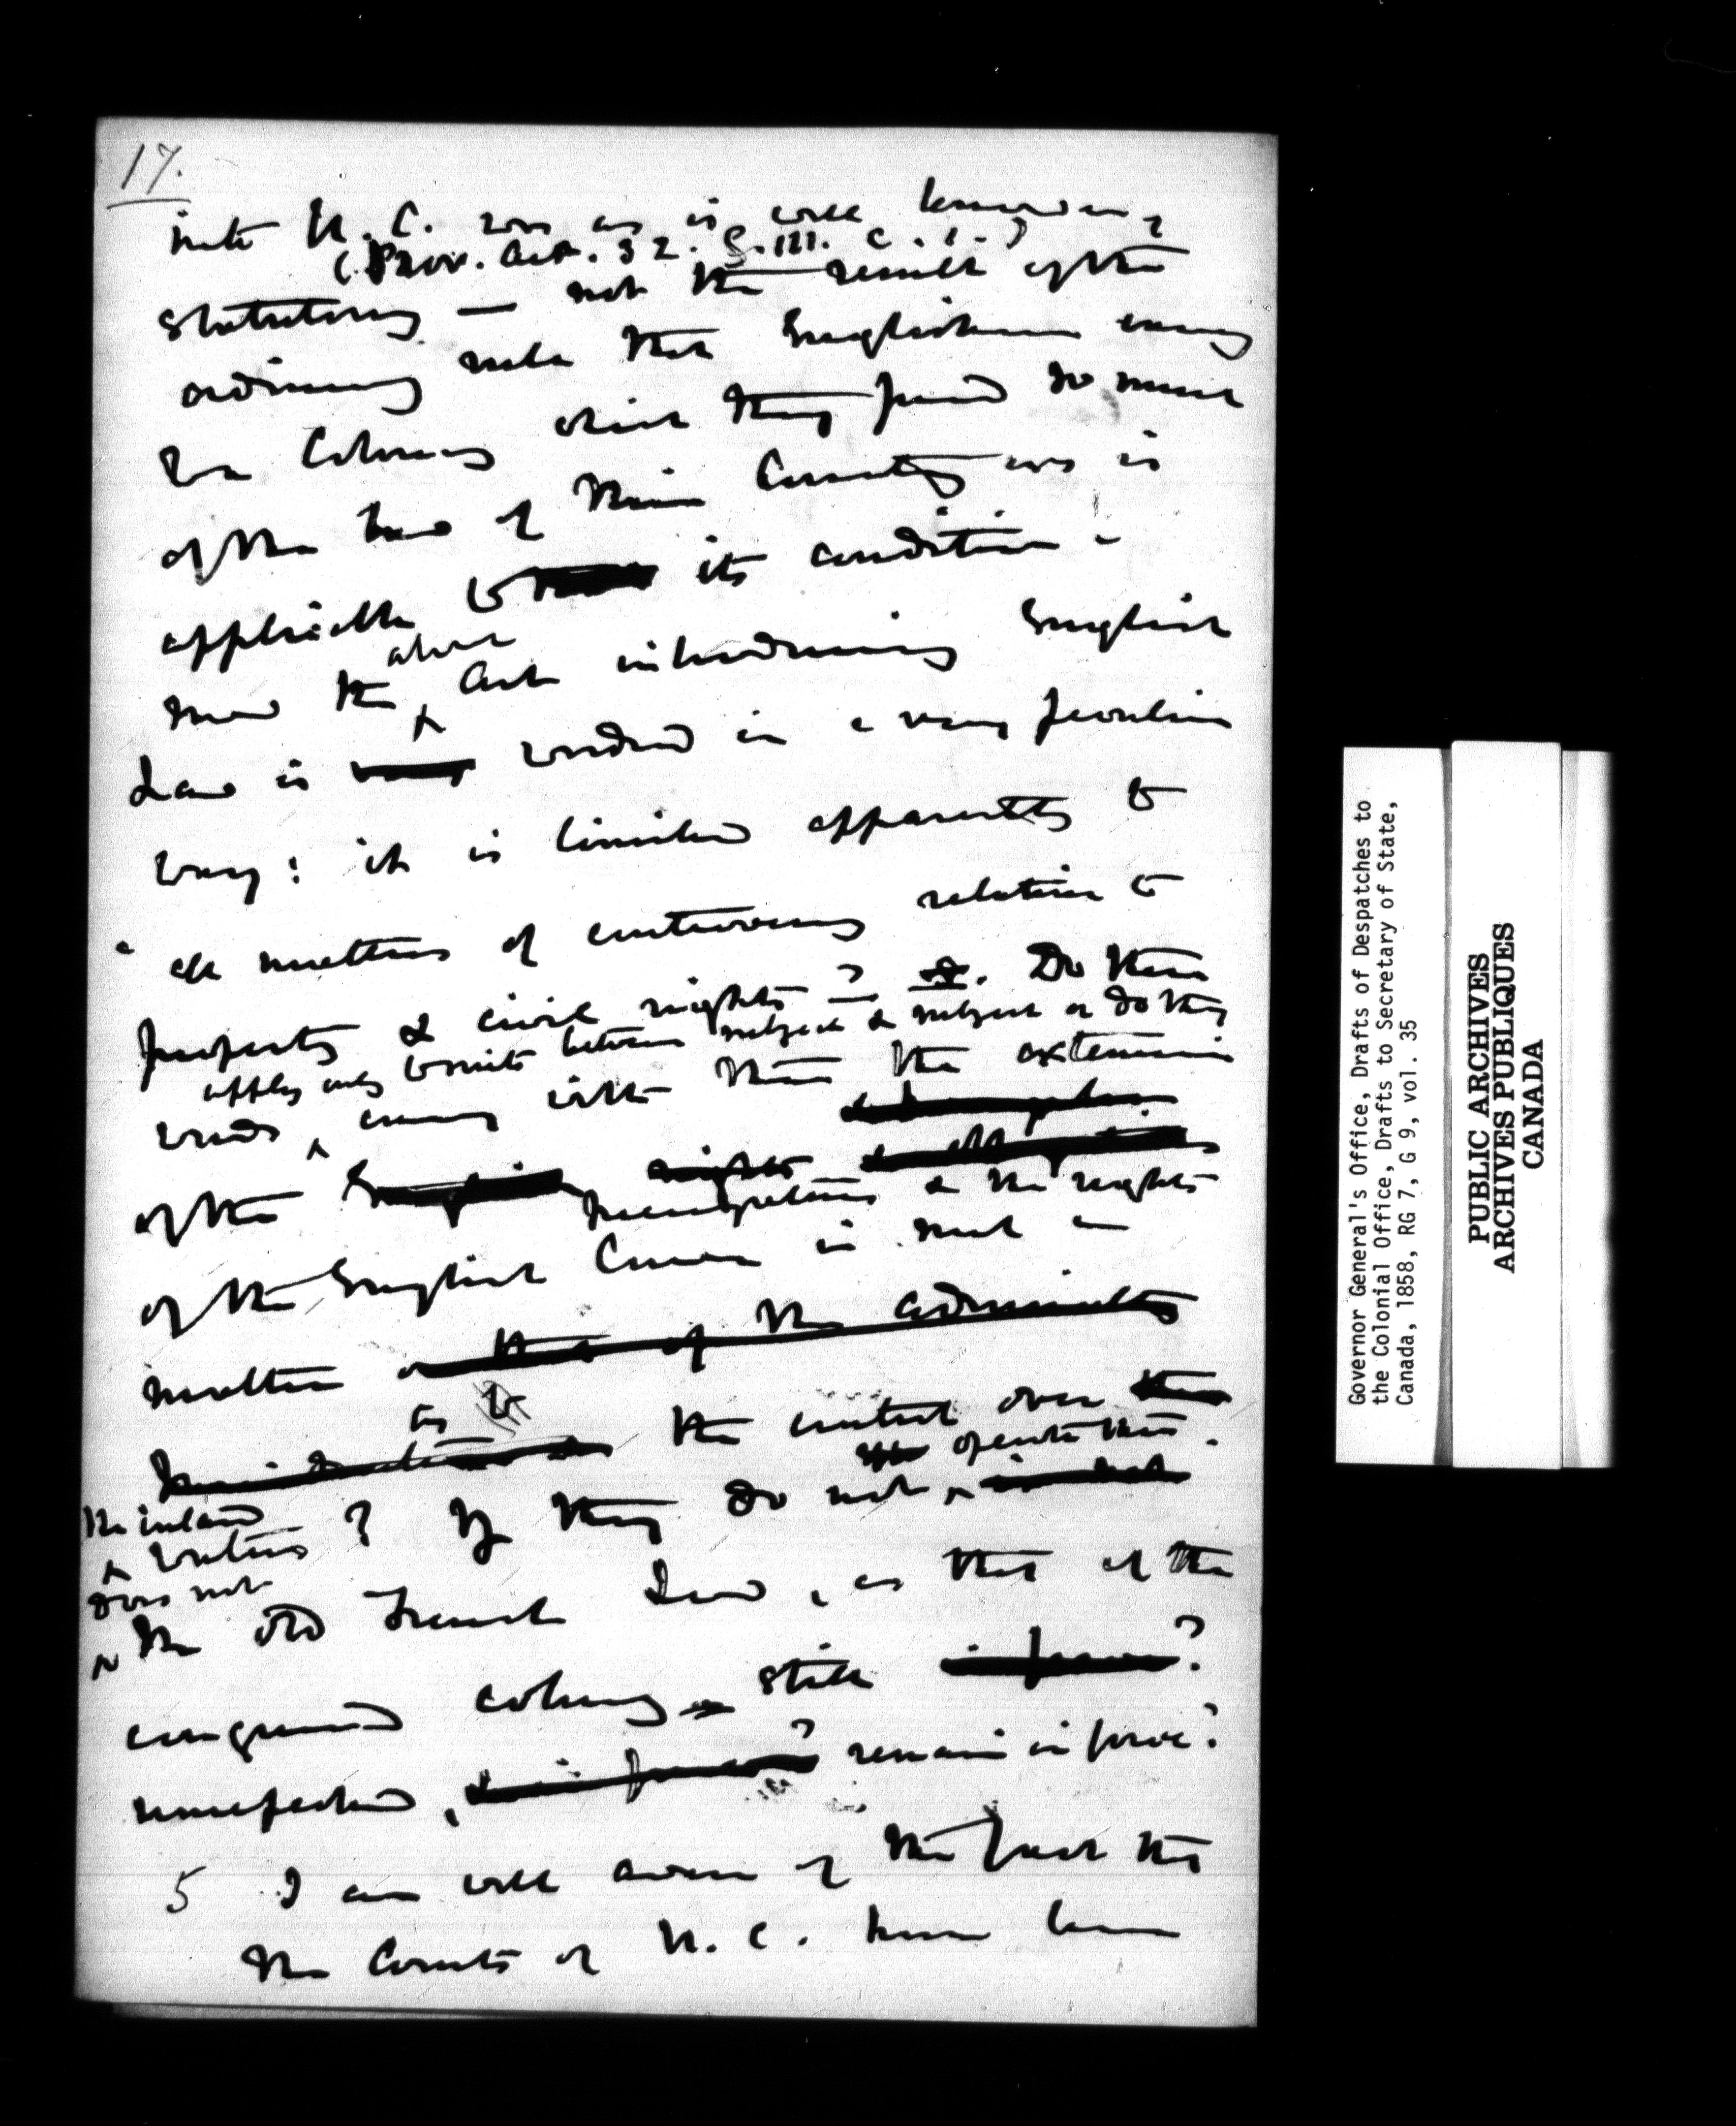 17.
into U. C. was as is well known,
(Prov. Act. 32. G. III. c. 1.)
statutory — not the result of the
ordinary rule that Englishmen carry
to a Colony which they found so much
of the Law of their Country as is
applicable to its condition -
Now the above Act introducing English
Law is very worded in a very peculiar
way: it is limited apparently to
" all matters of controversy relative to
property & civil rights" —. Do these
apply only to suits between subject & subject or do they
words, carry with them the extension
of the English rights
prerogatives & the rights
of the English Crown in such a
matter or that of the admiralty
jurisdiction as to the control over the
the inland waters? If they do not operate thus.
does not
the old French Law, as that of the
conquered colony still in force?
unrepealed, remain in force?
5 I am well aware of the fact that
the Courts of U. C. have been
Governor General's Office, Drafts of Despatches to
the Colonial Office, Drafts to Secretary of State,
Canada, 1858, RG 7, G 9, vol. 35
PUBLIC ARCHIVES
ARCHIVES PUBLIQUES
CANADA